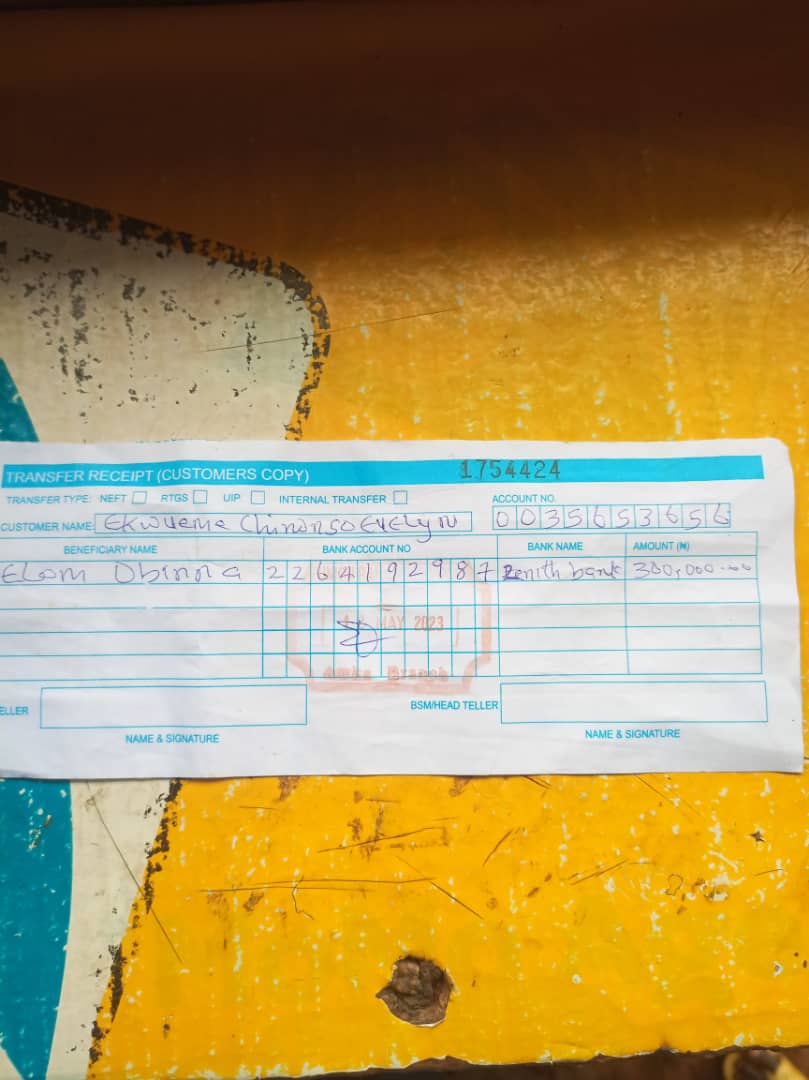 TRANSFER RECEIPT (CUSTOMERS COPY) 1754424
TRANSFER TYPE: NEFT RTGS UIP INTERNAL TRANSFER ACCOUNT NO.
CUSTOMER NAME: Ekwueme Chinonso Evelyn 0035653656
BENEFICIARY NAME BANK ACCOUNT NO BANK NAME AMOUNT (₦)
Elom Obinna 2264192987 Zenith bank 300,000.00
MAY 2023
Branch
ELLER BSM/HEAD TELLER
NAME & SIGNATURE NAME & SIGNATURE